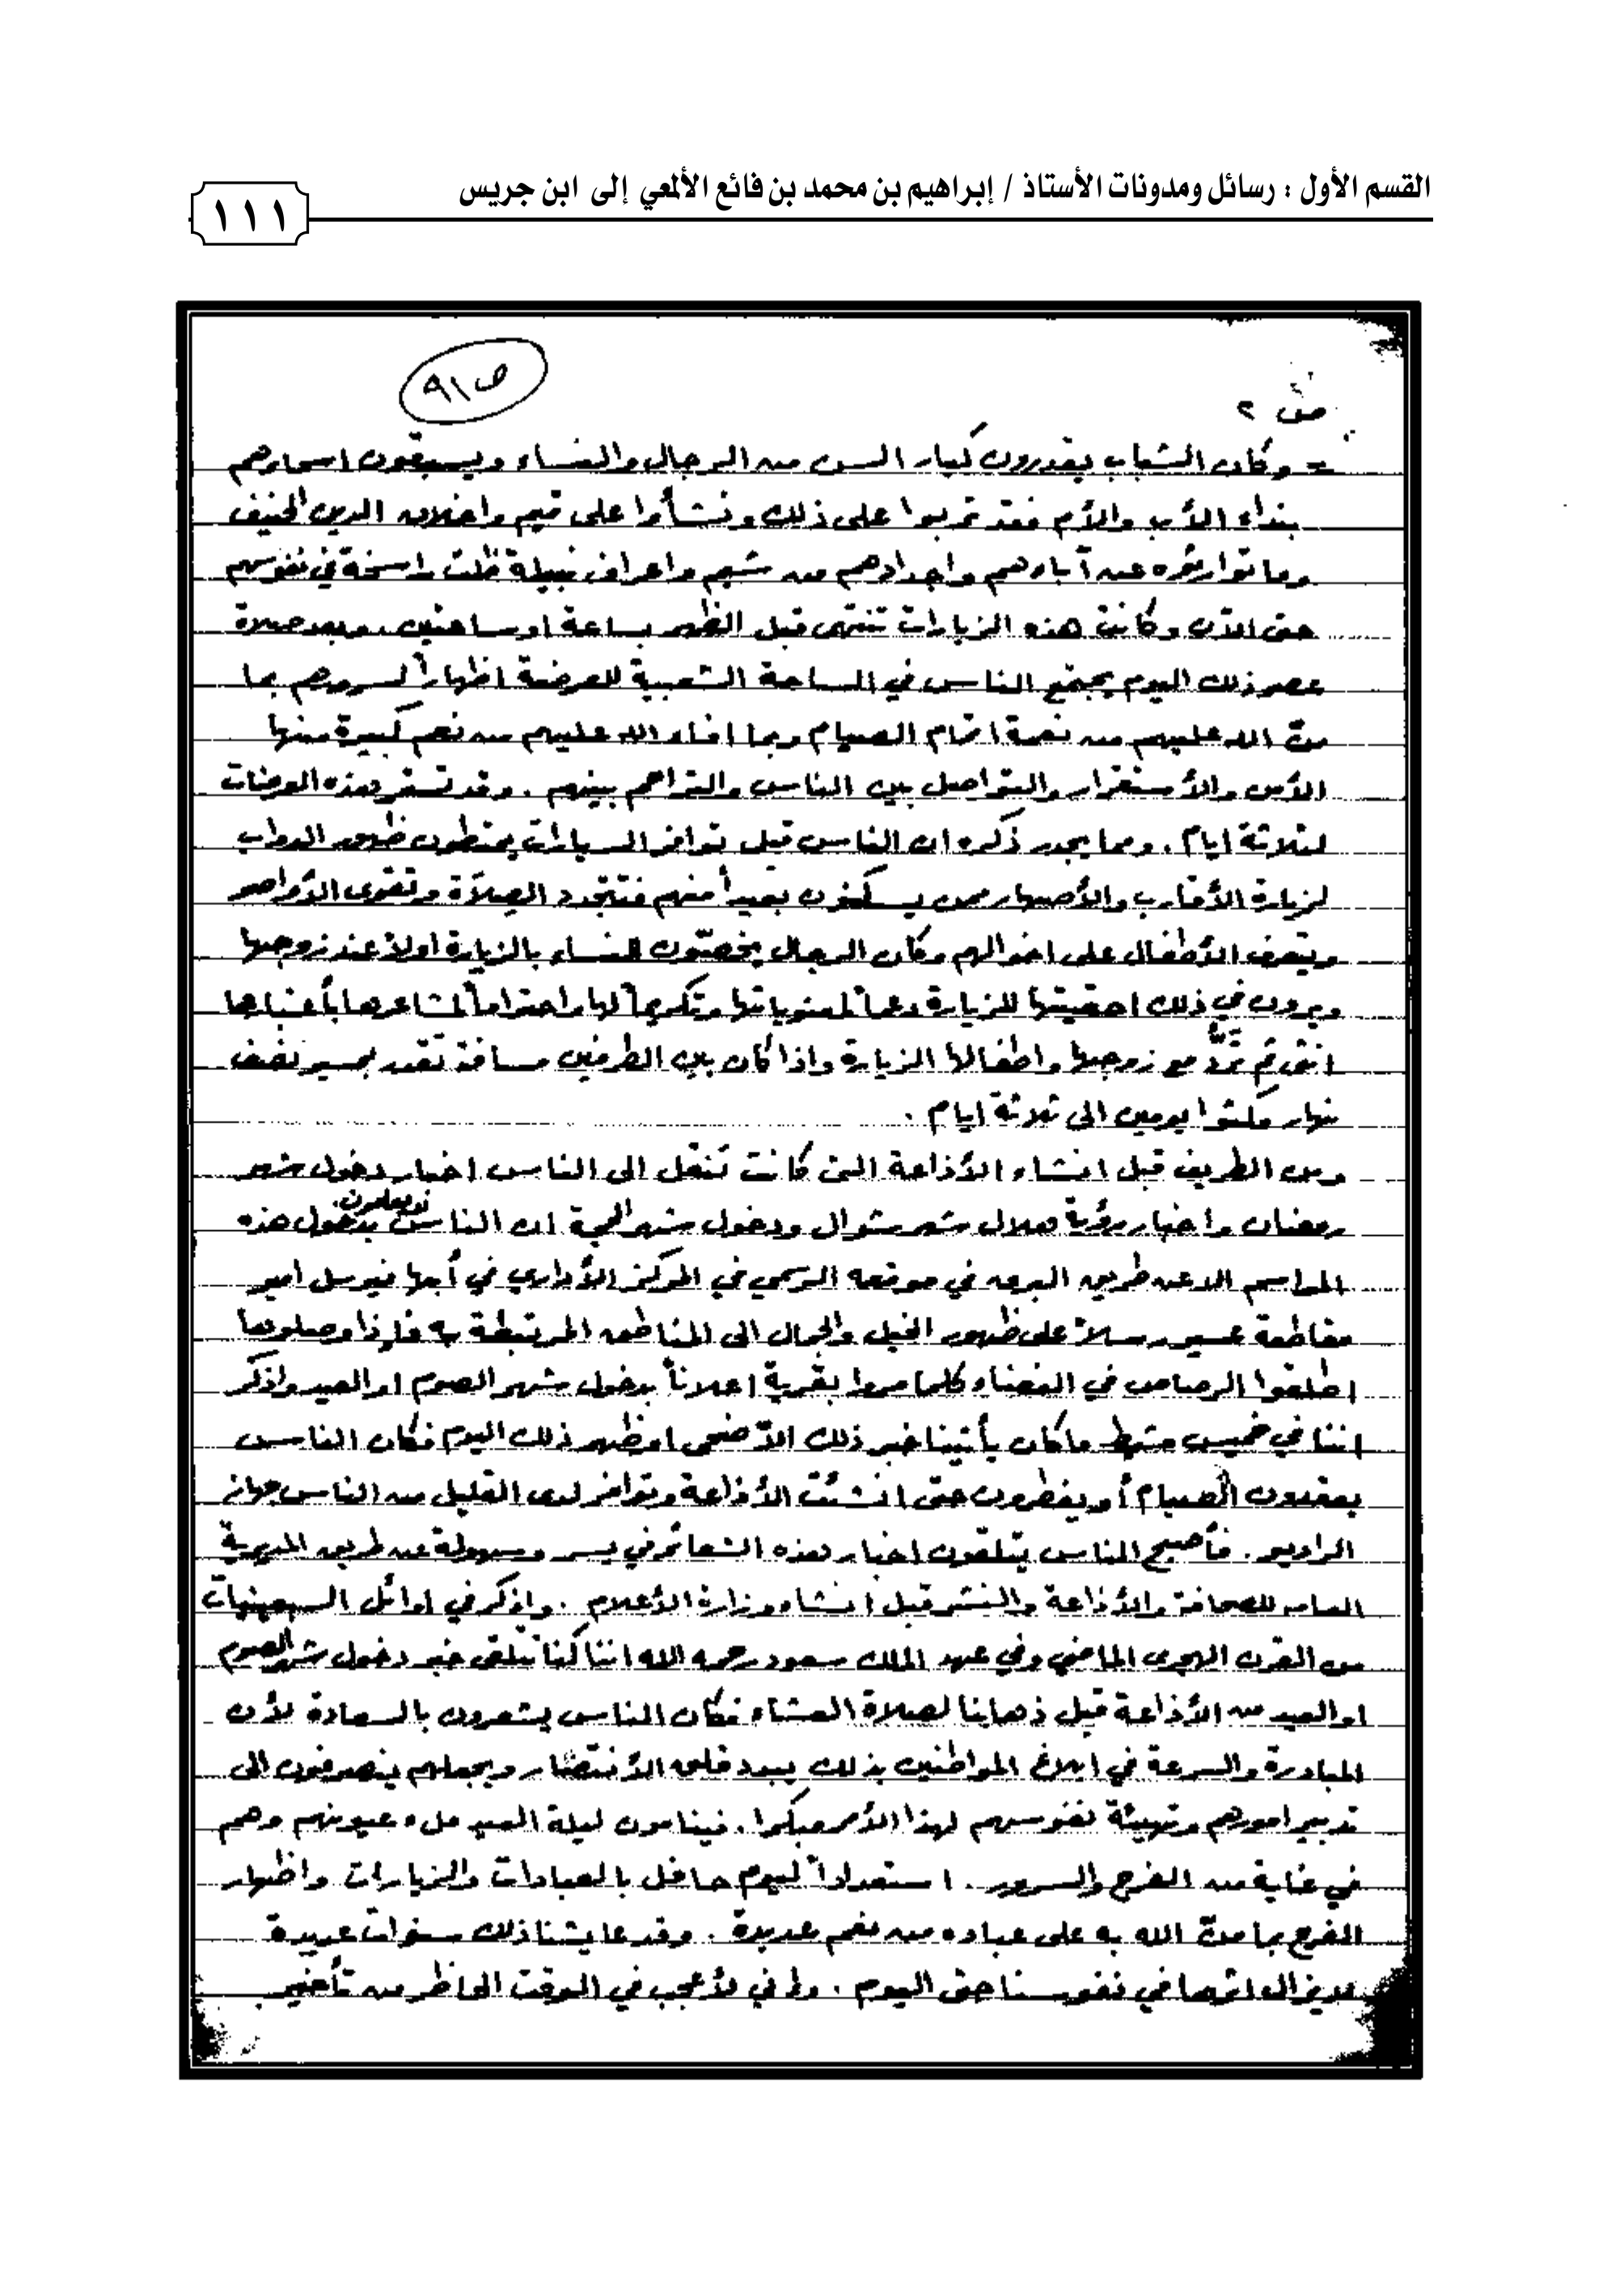 القسم الأول : رسائل ومدونات الأستاذ / إبراهيم بن محمد بن فائع الألمعي إلى ابن جريس
١١١
ص ٩١
ص ٢
= وكان الشباب يقدرون كبار السن من الرجال والنساء ويسبقون اسماءهم
بنداء الأب والأم فقد تربوا على ذلك ونشأوا على قيم واخلاق الدين الحنيف
وما توارثوه عن آباءهم واجدادهم من شيم واعراف نبيلة ظلت راسخة في نفوسهم
حتى الآن وكانت هذه الزيارات تنتهي قبل الظهر بساعة او ساعتين. وبعد صلاة
عصر ذلك اليوم يجتمع الناس في الساحة الشعبية للعرضة اظهاراً لسرورهم بما
منّ الله عليهم من نعمة اتمام الصيام وبما افاء الله عليهم من نعم كبيرة منها
الأمن والأستقرار والتواصل بين الناس والتراحم بينهم. وقد تستمر هذه العرضات
لثلاثة ايام. ومما يجدر ذكره ان الناس قبل توافر السيارات يمتطون ظهور الدواب
لزيارة الأقارب والأصهار ممن يسكنون بعيداً منهم فتتجدد الصلاة وتقوى الأواصر
ويتعرف الأطفال على اخوالهم وكان الرجال يخصّون النساء بالزيارة اولاً عند زوجها
ويرون في ذلك احقيتها للزيارة دعماً لمعنوياتها وتكريماً لها واحتراماً لمشاعرها بأعتبارها
انثى ثم تردّ مع زوجها واطفالها الزيارة واذا كان بين الطرفين مسافة تقدر بمسير نصف
نهار مكثوا يومين الى ثلاثة ايام .
ومن الطريف قبل انشاء الأذاعة التي كانت تنقل الى الناس اخبار دخول شهر
رمضان واخبار رؤية هلال شهر شوال ودخول شهر الحجة ان الناس لا يعلمون بدخول هذه
المواسم الا عن طريق البرق في موقعه الرسمي في المركز الأداري في أبها فيرسل امير
مقاطعة عسير رسلاً على ظهور الخيل والجمال الى المناطق المرتبطة به فإذا وصلوها
اطلقوا الرصاص في الفضاء كلما مروا بقرية اعلاناً بدخول شهر الصوم او العيد واذكر
اننا في خميس مشيط ما كان يأتينا خبر ذلك الا ضحى او ظهر ذلك اليوم فكان الناس
يعقدون الصيام أو يفطرون حتى انشئت الأذاعة وتوافر لدى القليل من الناس جهاز
الراديو. فأصبح الناس يتلقون اخبار هذه الشعائر في يسر وسهولة عن طريق المديرية
العامه للصحافة والأذاعة والنشر قبل انشاء وزارة الأعلام. واذكر في اوائل السبعينيات
من القرن الهجري الماضي وفي عهد الملك سعود رحمه الله اننا كنا نتلقى خبر دخول شهر الصوم
او العيد من الأذاعة قبل ذهابنا لصلاة العشاء فكان الناس يشعرون بالسعادة لأن
المبادرة والسرعة في ابلاغ المواطنين بذلك يبدد قلق الأنتظار ويجعلهم ينصرفون الى
تدبير امورهم وتهيئة نفوسهم لهذا الأمر مبكرا. فينامون ليلة العيد ملء عيونهم وهم
في غاية من الفرح والسرور. استعداداً ليوم حافل بالعبادات والزيارات واظهار
الفرح بما منّ الله به على عباده من نعم عديدة. وقد عايشنا ذلك سنوات عديدة
لا يزال اثرها في نفوسنا حتى اليوم. وإني لأعجب في الوقت الحاظر من تأخير